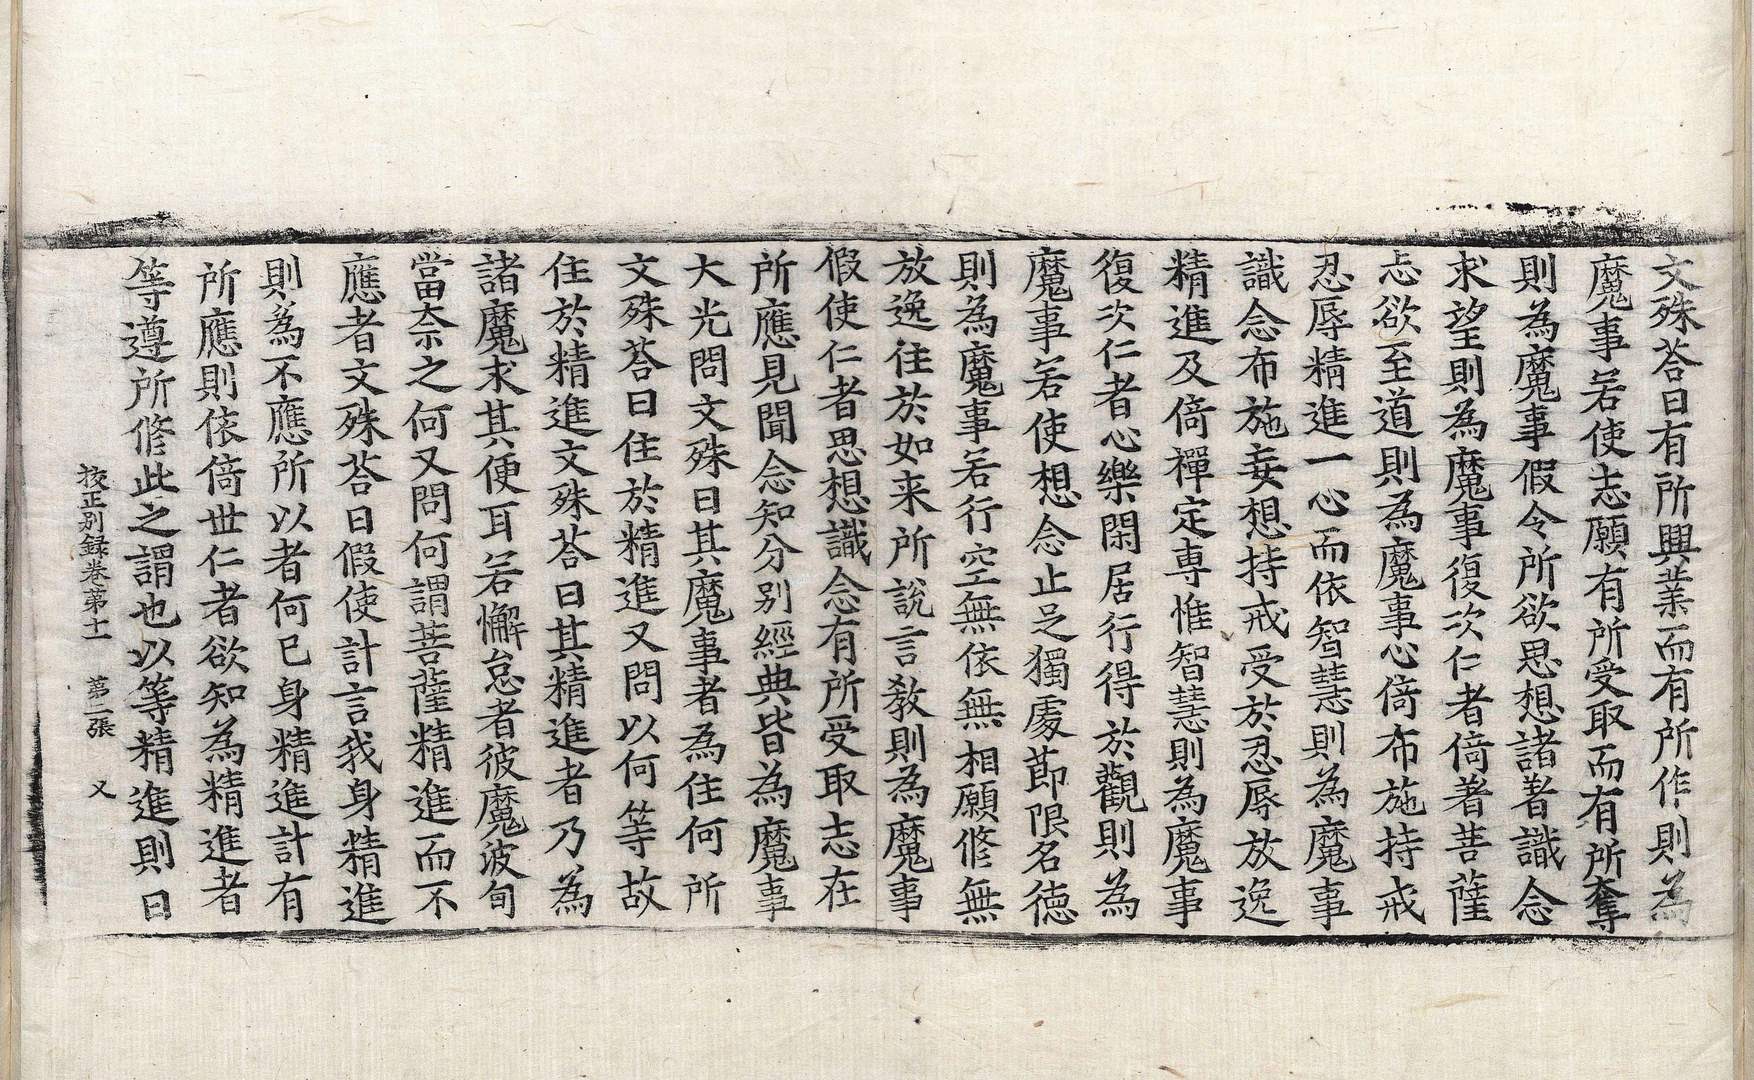 文殊荅曰有所興業而有所作則為
魔事若使志願有所受取而有所奪
則為魔事假令所欲思想諸著識念
求望則為魔事復次仁者倚著菩薩
忎欲至道則為魔事心倚布施持戒
忍辱精進一心而依智慧則為魔事
識念布施妄想持戒受於忍辱放逸
精進及倚禪定專惟智慧則為魔事
復次仁者心樂閑居行得於觀則為
魔事若使想念止足獨處莭限名德
則為魔事若行空無依無相願修無
放逸住於如来所說言教則為魔事
假使仁者思想識念有所受取志在
所應見聞念知分別經典皆為魔事
大光問文殊曰其魔事者為住何所
文殊荅曰住於精進又問以何等故
住於精進文殊荅曰其精進者乃為
諸魔求其便耳若懈怠者彼魔波旬
當柰之何又問何謂菩薩精進而不
應者文殊荅曰假使計言我身精進
則為不應所以者何已身精進計有
所應則依倚世仁者欲知為精進者
等遵所修此之謂也以等精進則曰
挍正別録卷第十一 第二張 又